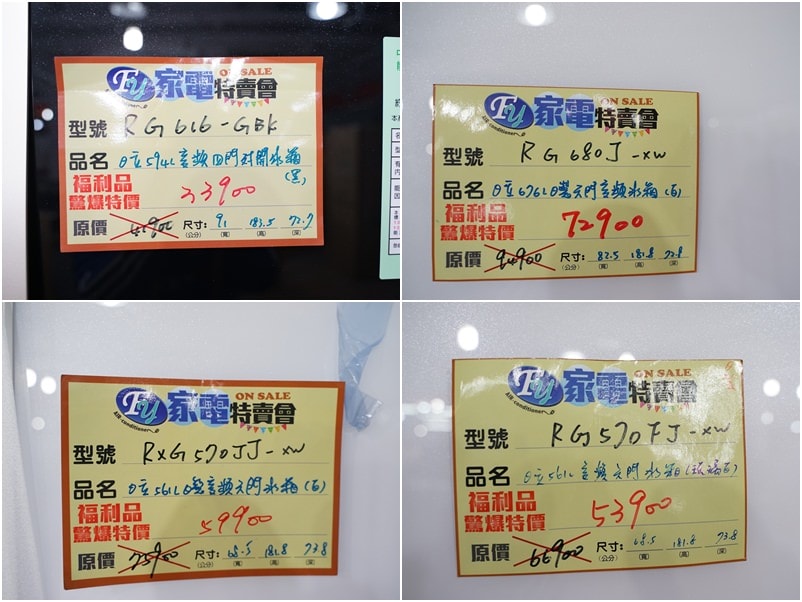 FU 家電 ON SALE 特賣會
型號 RG616-GBK
品名 日立594L變頻四門對開冰箱(黑)
福利品
驚爆特價 33900
原價 尺寸:(公分) 91(寬) 183.5(高) 72.7(深)
FU 家電 ON SALE 特賣會
air-conditioner
型號 RG680J-XW
品名 日立676L日製六門變頻冰箱(白)
福利品
驚爆特價 72900
原價 94900 尺寸:(公分) 82.5(寬) 181.8(高) 72.8(深)
FU 家電 ON SALE 特賣會
air-conditioner
型號 RXG570JJ-XW
品名 日立561L日製變頻六門冰箱(白)
福利品
驚爆特價 59900
原價 75900 尺寸:(公分) 68.5(寬) 181.8(高) 73.8(深)
FU 家電 ON SALE 特賣會
air-conditioner
型號 RG570FJ-XW
品名 日立561L變頻六門冰箱(琉璃白)
福利品
驚爆特價 53900
原價 66900 尺寸:(公分) 68.5(寬) 181.8(高) 73.8(深)